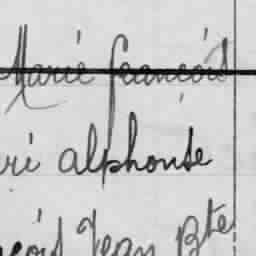 Marie François
ri alphonse
çois Jean Bte